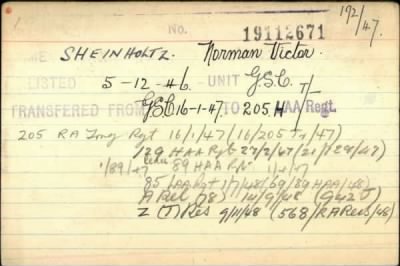 192/47.
No. 19112671
SHEINHOLTZ. Norman Victor.
LISTED 5-12-46. UNIT G.S.C. T/
TRANSFERED FROM G.S.C. 16-1-47. TO 205 H/HAA Regt.
205 RA Trng Rgt 16/1/47 (16/205 Tr/47)
129 HAA Rgt 27/2/47 (21/129/47)
1/89/47 89 HAA Rgt 1/4/47
85 LAA Rgt 1/7/48 (69/89 HAA/48)
A Rel (78) 14/9/48 (G42 J)
Z (T) Res 9/11/48 (568/RA Recs/48)